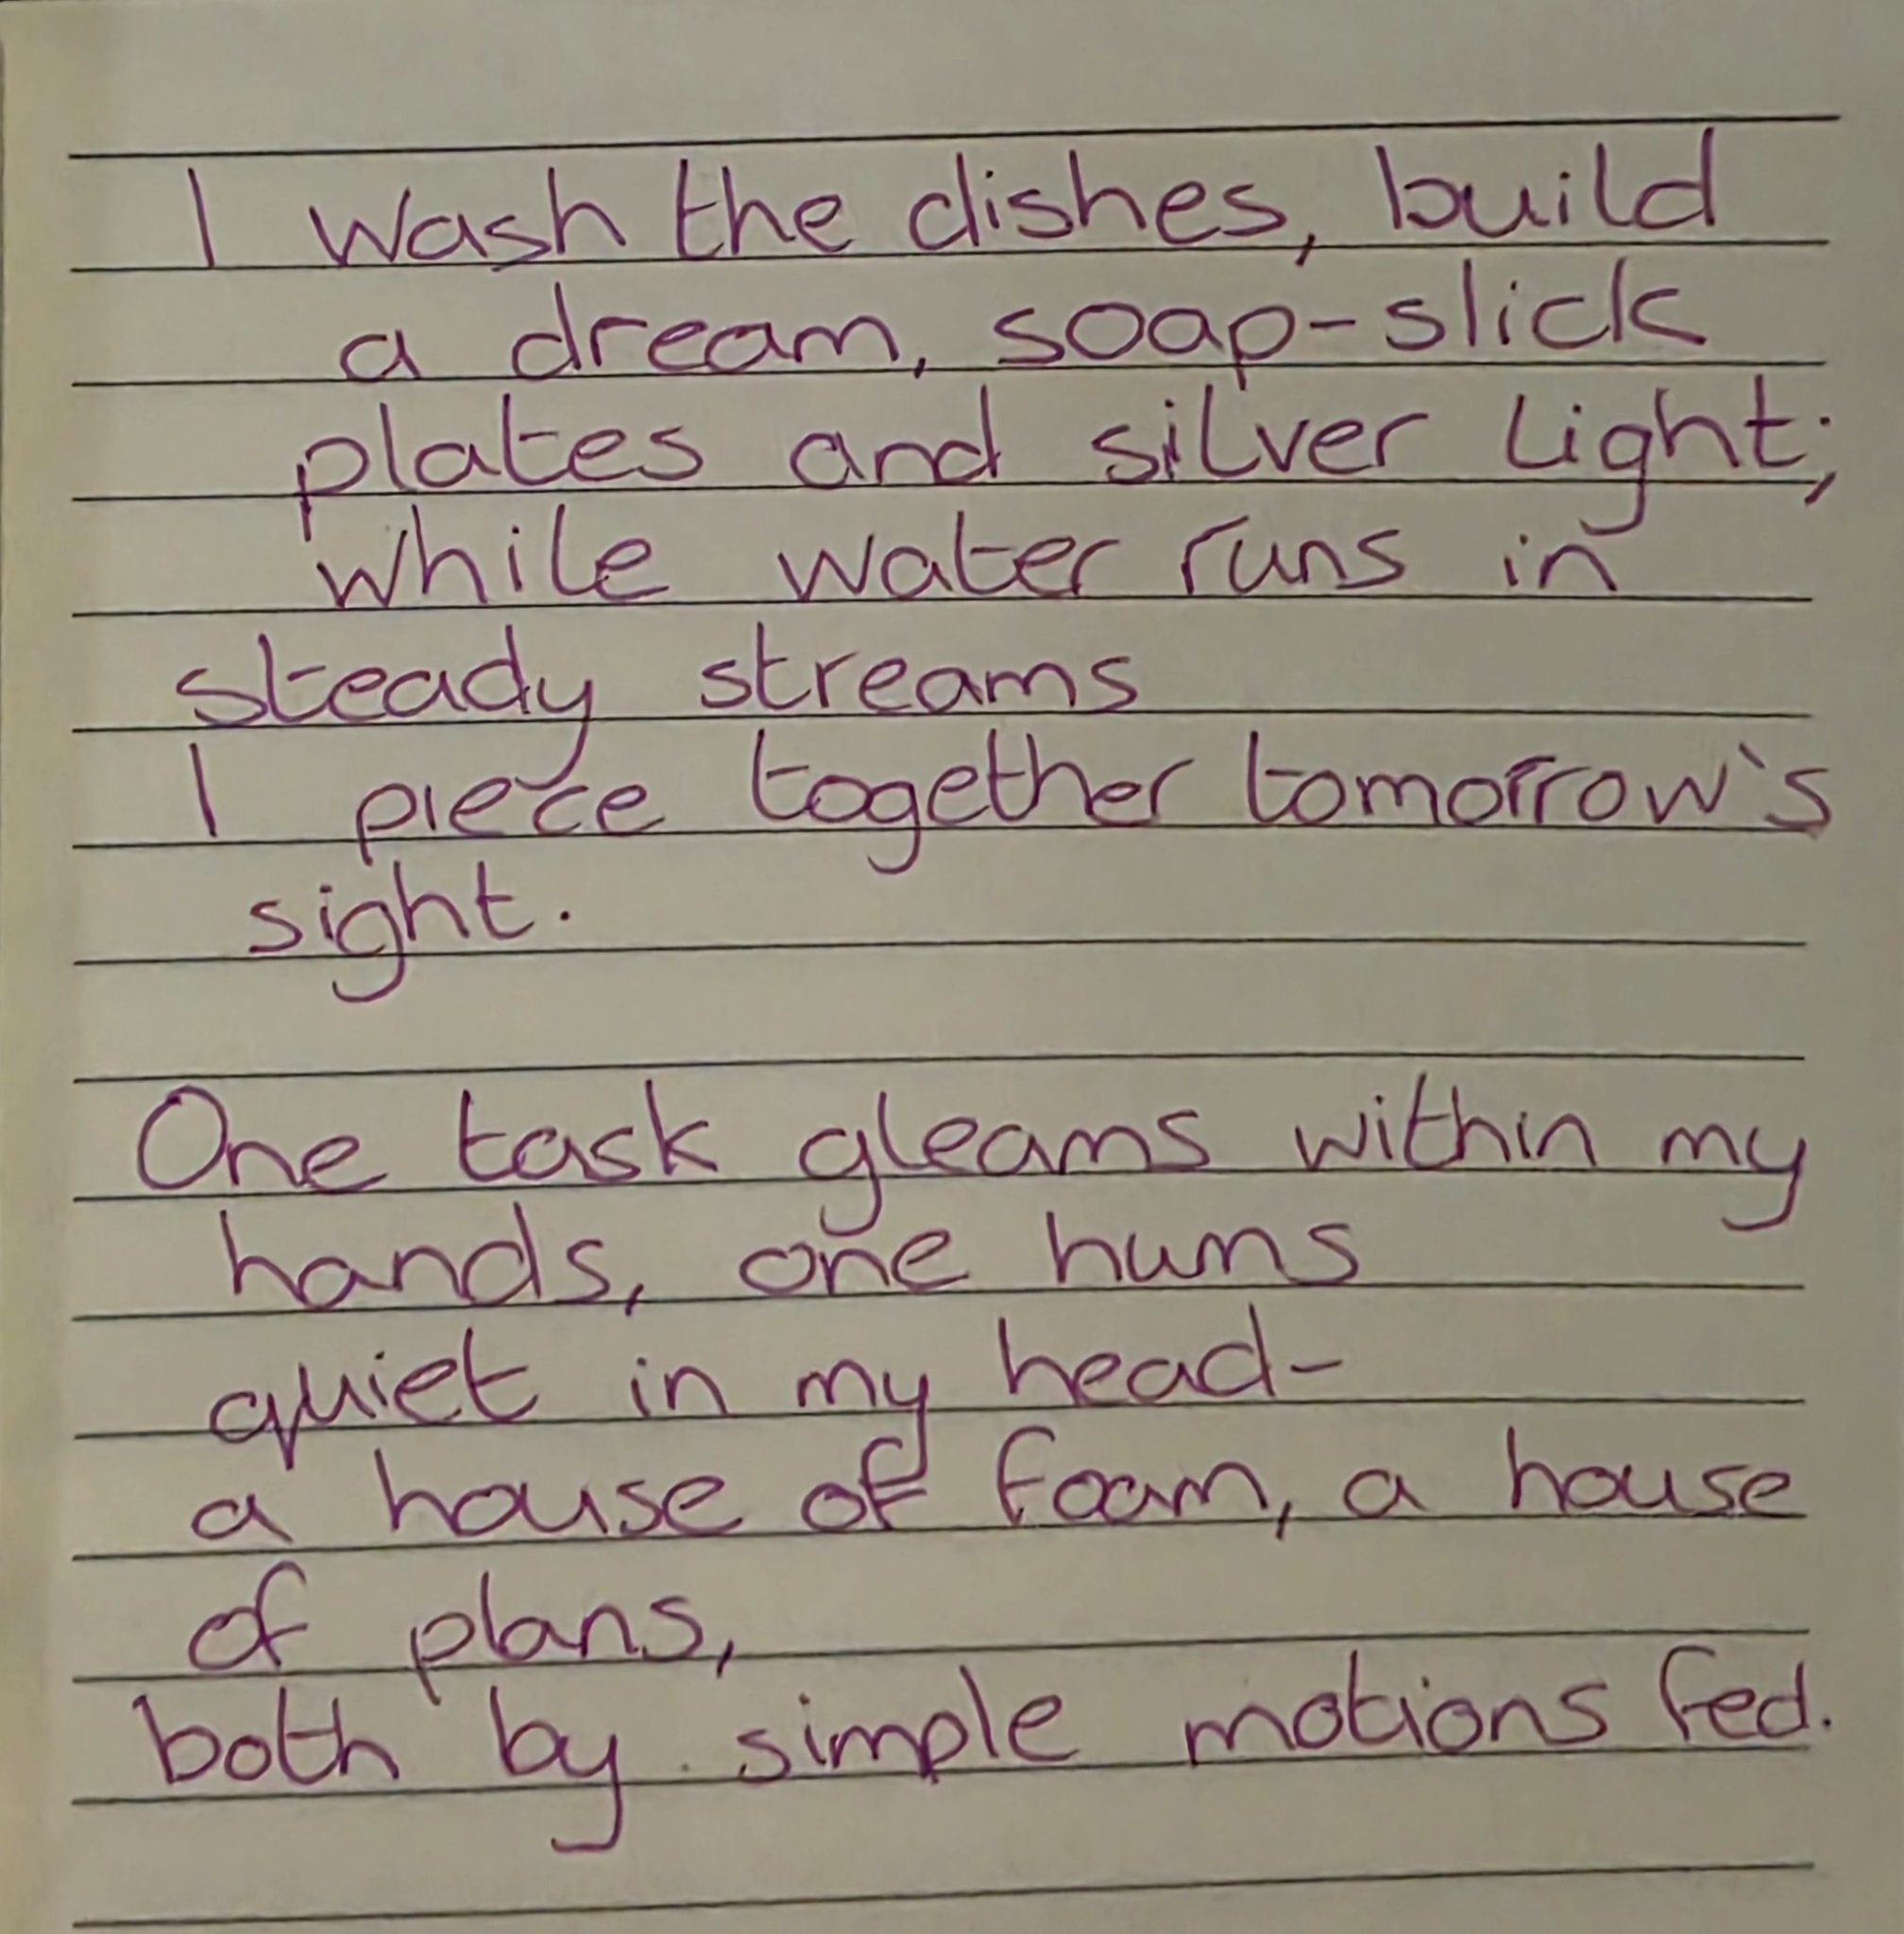 I wash the dishes, build
a dream, soap-slick
plates and silver light;
while water runs in
steady streams
I piece together tomorrow's
sight.
One task gleams within my
hands, one hums
quiet in my head-
a house of foam, a house
of plans,
both by simple motions fed.